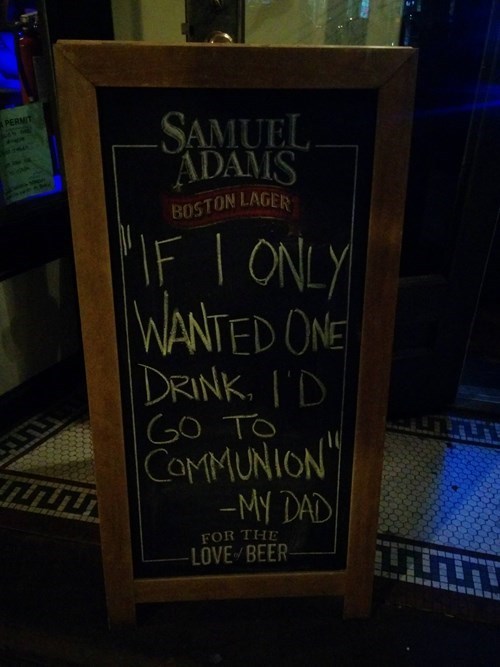 PERMIT
SAMUEL
ADAMS
BOSTON LAGER
"IF I ONLY
WANTED ONE
DRINK, I'D
GO TO
COMMUNION"
-MY DAD
FOR THE
LOVE of BEER